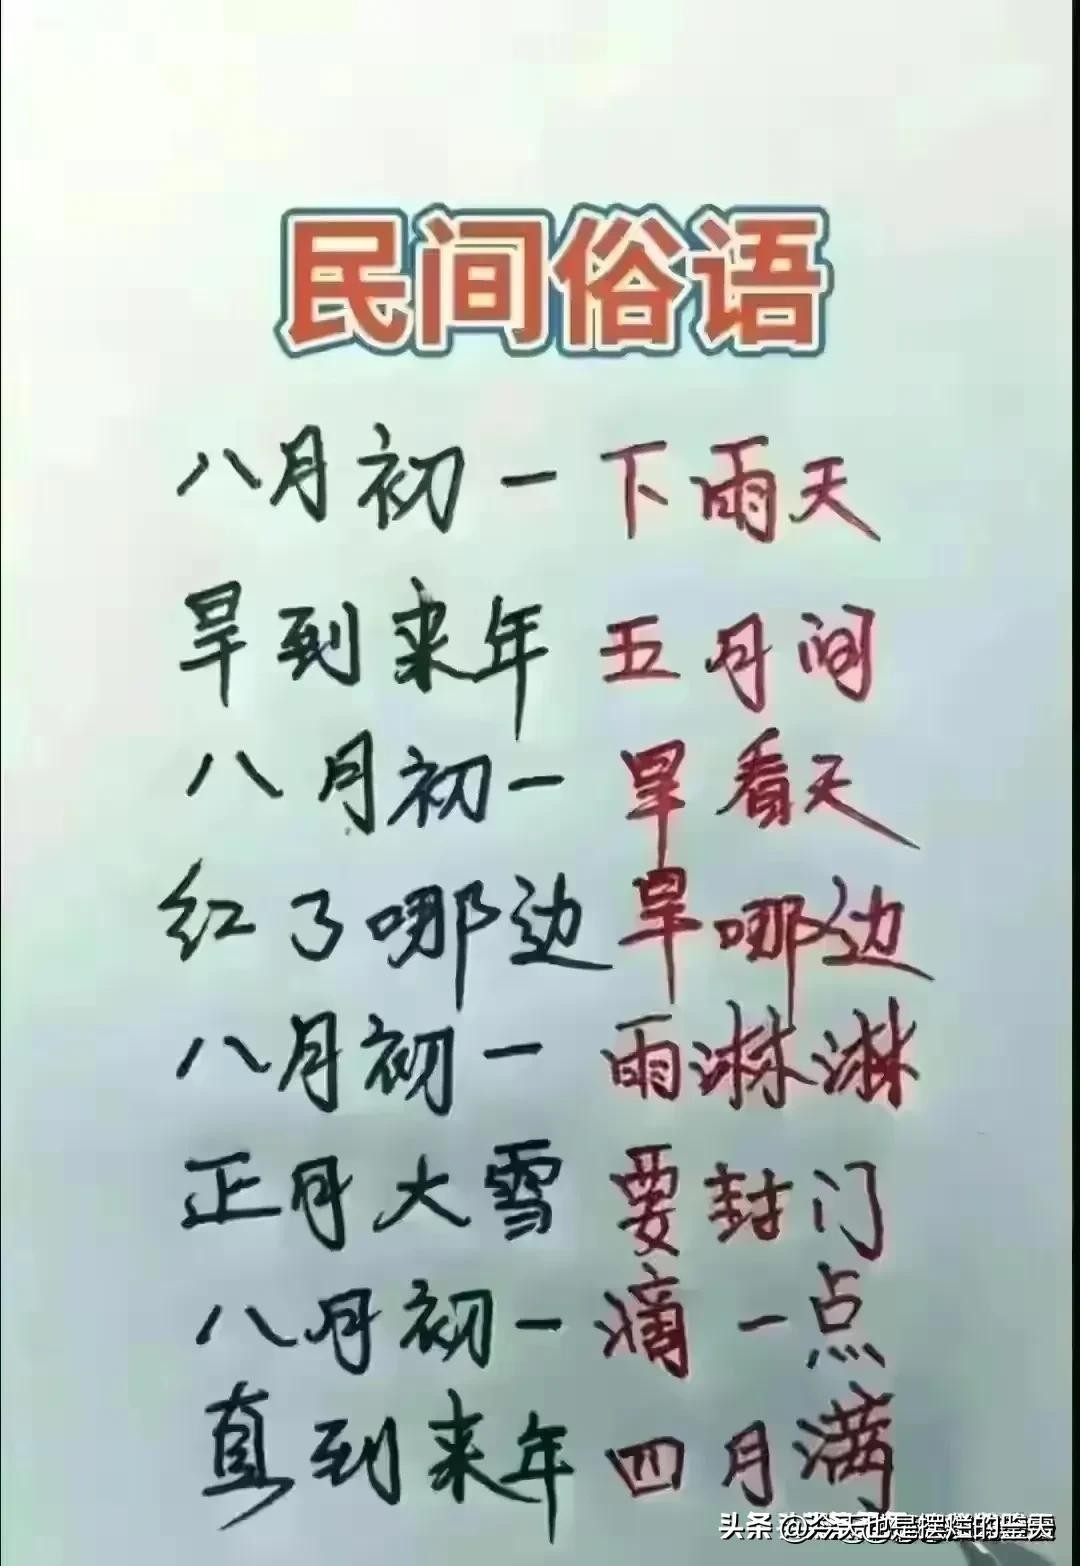 民间俗语
八月初一下雨天
旱到来年五月间
八月初一旱看天
红了哪边旱哪边
八月初一雨淋淋
正月大雪要封门
八月初一滴一点
直到来年四月满
头条 @今天也是摆烂的